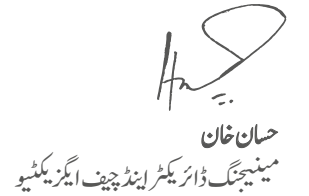 حسان خان
مینیجنگ ڈائریکٹر اینڈ چیف ایگزیکٹیو